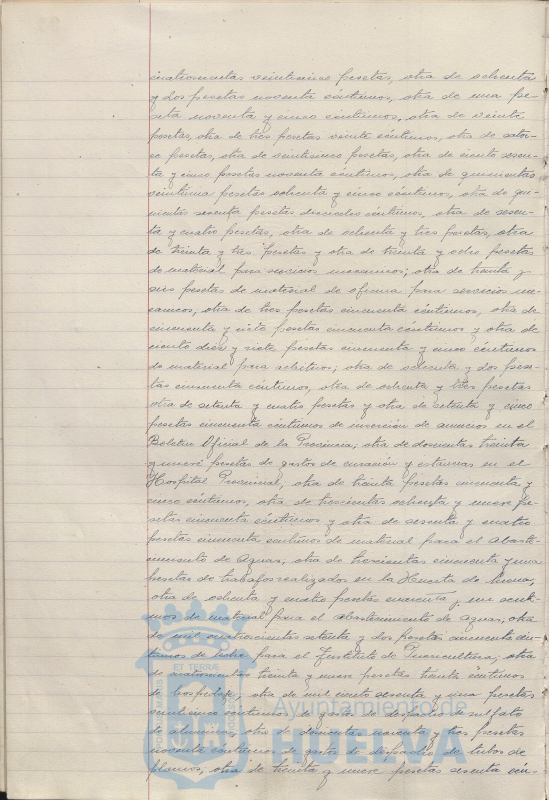 cuatrocientas veinticinco pesetas, otra de ochenta
y dos pesetas noventa céntimos, otra de una pe-
seta noventa y cinco céntimos, otra de veinte
pesetas, otra de tres pesetas veinte céntimos, otra de cator-
ce pesetas, otra de veinticinco pesetas, otra de ciento sesen-
ta y cinco pesetas noventa céntimos, otra de quinientas
veintiuna pesetas ochenta y cinco céntimos, otra de qui-
nientas sesenta pesetas céntimos, otra de sesen-
ta y cuatro pesetas, otra de ochenta y tres pesetas, otra
de treinta y tres pesetas y otra de treinta y ocho pesetas
de material para servicios mecánicos; otra de treinta y
seis pesetas de material de oficina para servicios me-
cánicos, otra de tres pesetas cincuenta céntimos, otra de
cincuenta y siete pesetas cincuenta céntimos y otra de
ciento diez y siete pesetas cincuenta y cinco céntimos
de material para arbitrios; otra de ochenta y dos pese-
tas cincuenta céntimos, otra de ochenta y tres pesetas
otra de setenta y cuatro pesetas y otra de setenta y cinco
pesetas cincuenta céntimos de inserción de anuncios en el
Boletín Oficial de la Provincia; otra de doscientas treinta
y nueve pesetas de gastos de curación y estancias en el
Hospital Provincial, otra de treinta pesetas cincuenta y
cinco céntimos, otra de trescientas ochenta y nueve pe-
setas cincuenta céntimos y otra de sesenta y cuatro
pesetas cincuenta céntimos de material para el abaste-
cimiento de aguas, otra de trescientas cincuenta y una
pesetas de trabajos realizados en la Huerta de Mena,
otra de ochenta y cuatro pesetas cincuenta y un cénti-
mos de material para el abastecimiento de aguas, otra
de mil cuatrocientas setenta y dos pesetas cuarenta cén-
timos de leche para el Instituto de Puericultura; otra
de cuatrocientas treinta y nueve pesetas treinta céntimos
de hospedaje; otra de mil ciento sesenta y una pesetas
veinticinco céntimos de gastos de despacho de sulfato
de alumina, otra de doscientas noventa y tres pesetas
noventa céntimos de gastos de despacho de tubos de
plomo, otra de treinta y nueve pesetas sesenta cén-
PORTUS MARIS
ET TERRÆ
CUSTODIA
Ayuntamiento de
HUELVA